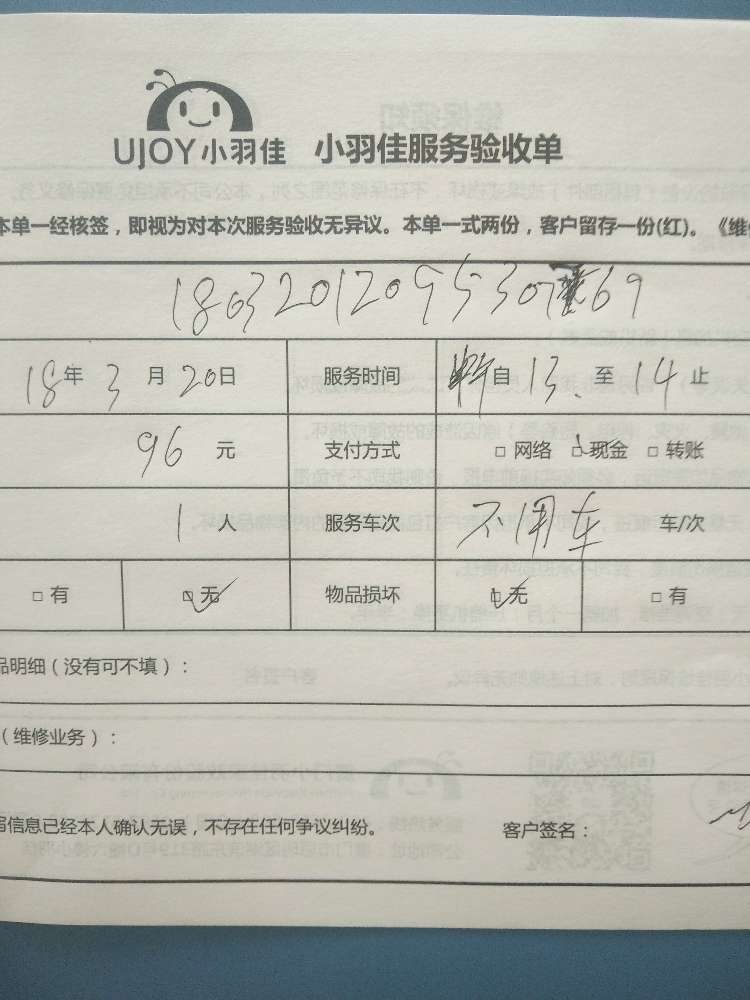 UJOY小羽佳 小羽佳服务验收单
本单一经核签，即视为对本次服务验收无异议。本单一式两份，客户留存一份(红)。《维
18年3月20日 服务时间 自13 至14止
96元 支付方式 □ 网络 □ 现金 □ 转账
1人 服务车次 不用车 车/次
□ 有 □ 无 物品损坏 □ 无 □ 有
品明细（没有可不填）：
（维修业务）：
信息已经本人确认无误，不存在任何争议纠纷。 客户签名：